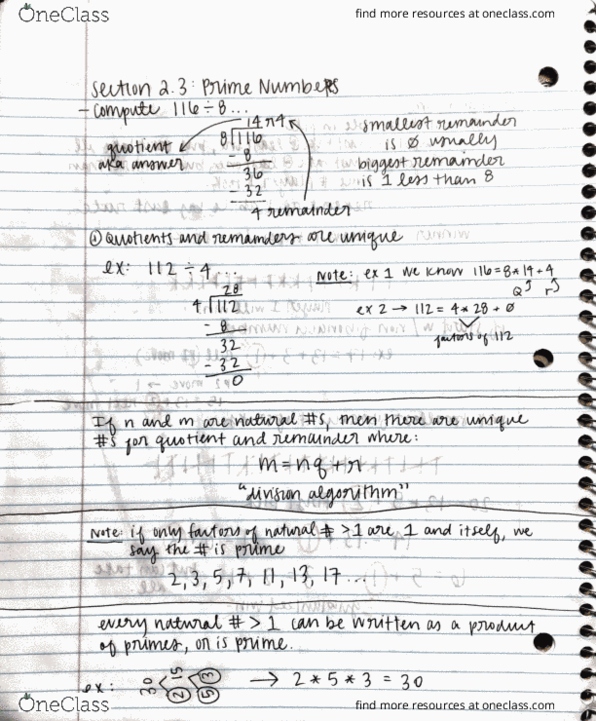 OneClass
find more resources at oneclass.com
section 2.3: Prime Numbers
- Compute 116 ÷ 8 ...
14 r 4
8 116
quotient
aka answer
- 8
36
- 32
4 remainder
smallest remainder
is 0 usually
biggest remainder
is 1 less than 8
① Quotients and remainders are unique
ex: 112 ÷ 4 ...
28
4 112
- 8
32
- 32
0
Note: ex 1 we know 116 = 8 * 14 + 4
Q r
ex 2 → 112 = 4 * 28 + 0
factors of 112
If n and m are natural #s, then there are unique
#s for quotient and remainder where:
m = nq + r
"division algorithm"
Note: if only factors of natural # > 1 are, 1 and itself, we
say the # is prime
2, 3, 5, 7, 11, 13, 17 ...
every natural # > 1 can be written as a product
of primes, or is prime.
ex: 30 15 2 3 5 → 2 * 5 * 3 = 30
OneClass
find more resources at oneclass.com